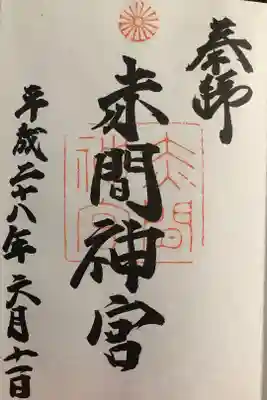 奉拝
赤間神宮
平成二十八年六月十一日
赤間
神宮